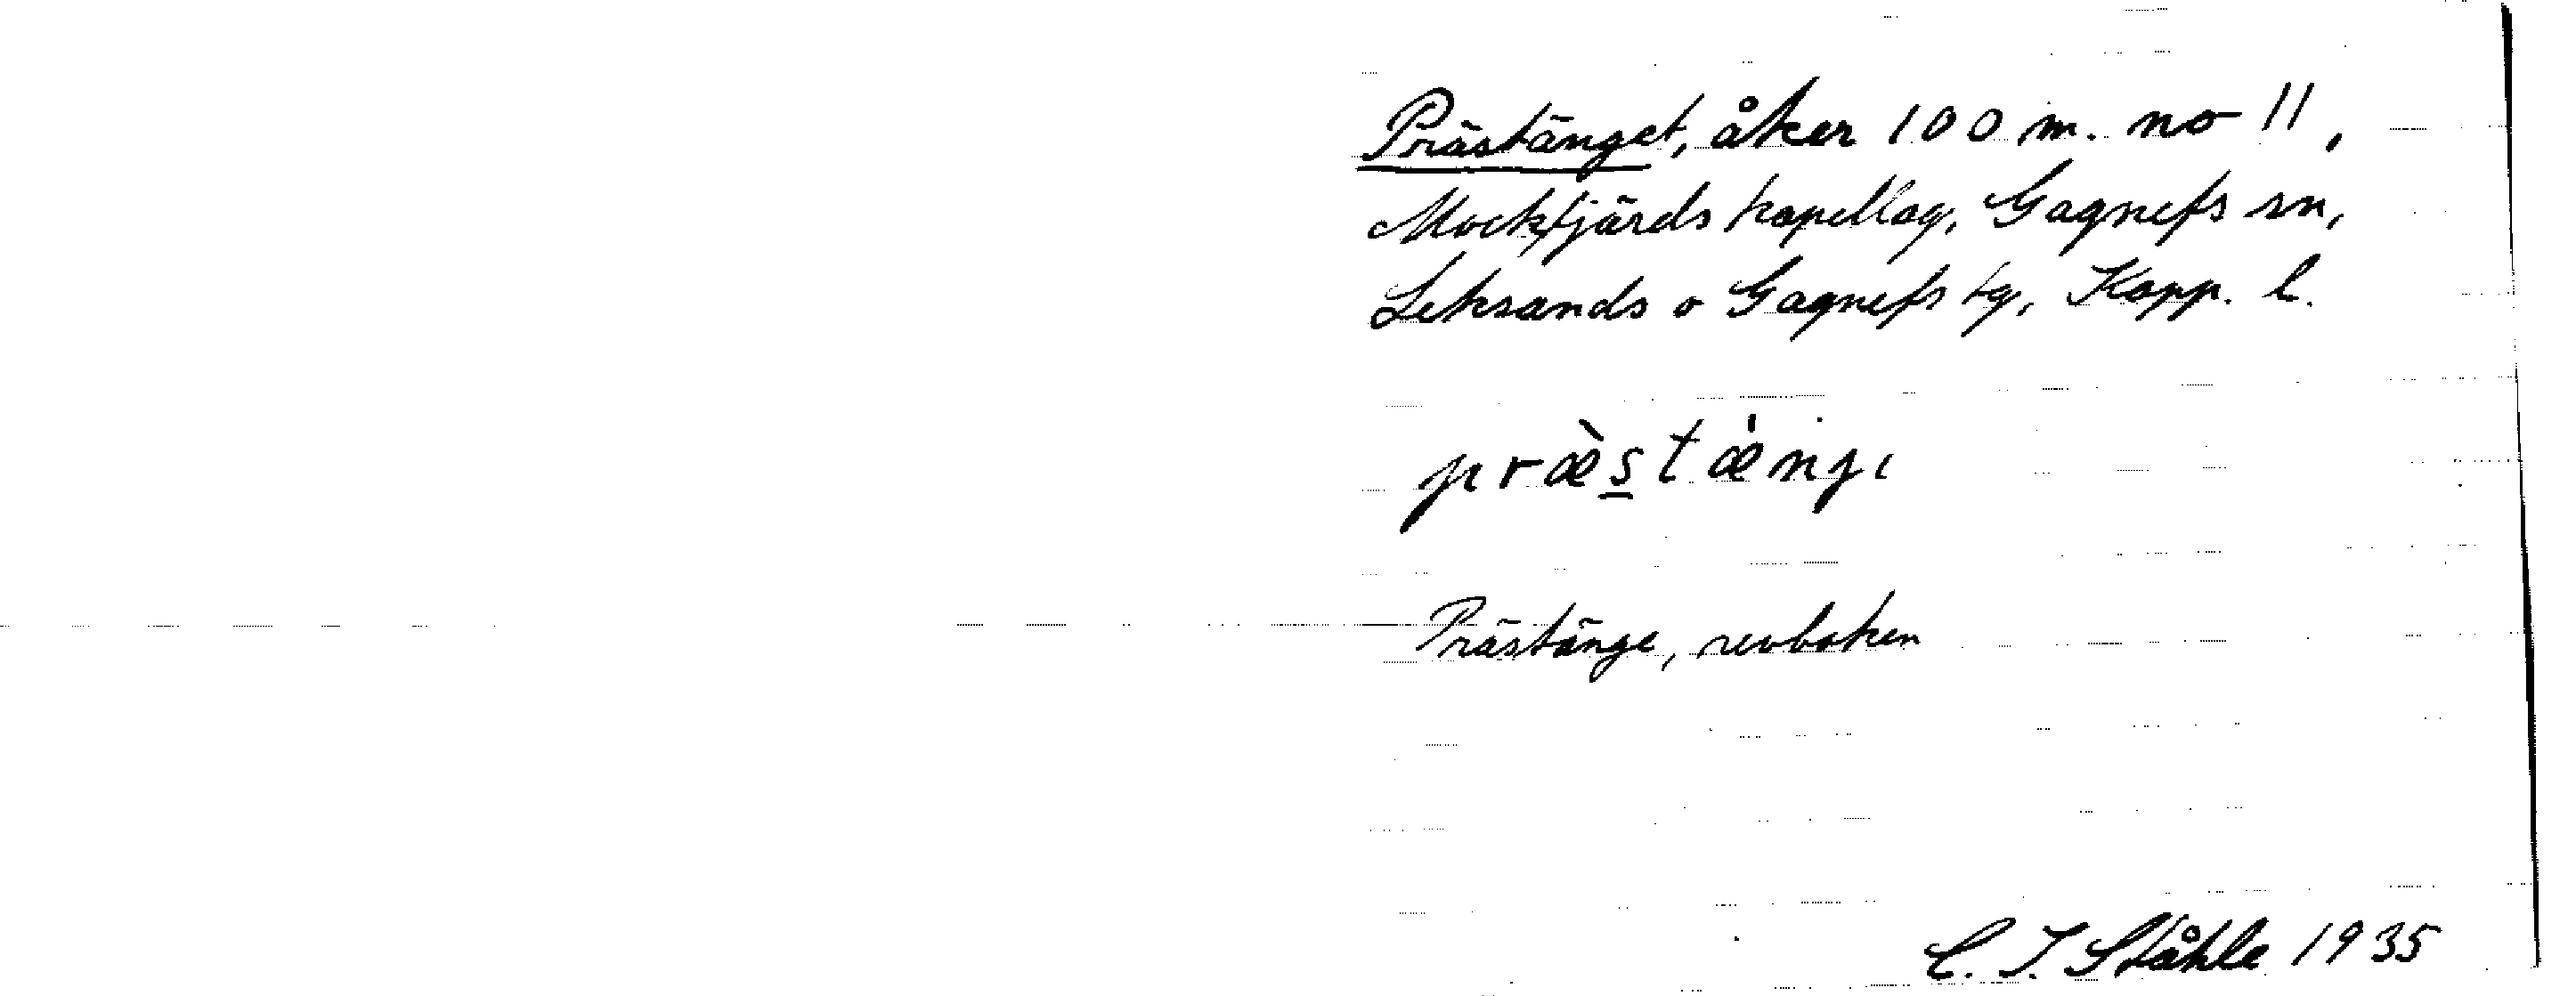 Prästänget, åker 100 m. no 11,
Mockfjärds kapellag, Gagnefs sn,
Leksands o Gagnefs tg, Kopp. l.
præ̀s̲tæ̀nji
Prästänge, revboken
C. I. Ståhle 1935